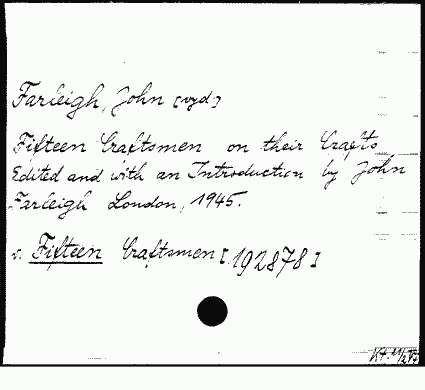 Farleigh, John [vyd.]
Fifteen Craftsmen on their Crafts
Edited and with an Introduction by John
Farleigh London, 1945.
v. Fifteen Craftsmen [192878]